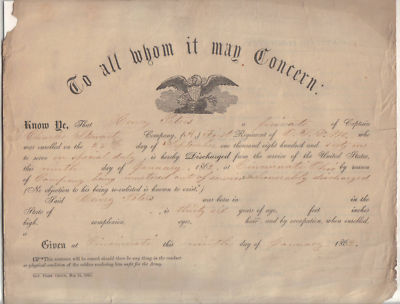 To all whom it may Concern:
Know Ye, That Henry a Private of Captain
Charles Company, Regiment of who
was enrolled on the day of one thousand eight hundred and sixty one
to serve is hereby Discharged from the service of the United States,
this ninth day of January, 1862, at Cincinnati Ohio by reason
of Company being mustered out of service honorably discharged
(No objection to his being re-enlisted is known to exist.)
Said Henry was born in in the
State of , is thirty six years of age, feet inches
high, complexion, eyes, hair, and by occupation, when enrolled,
a
Given at Cincinnati this ninth day of January 1862.
This sentence will be erased should there be any thing in the conduct
or physical condition of the soldier rendering him unfit for the Army.